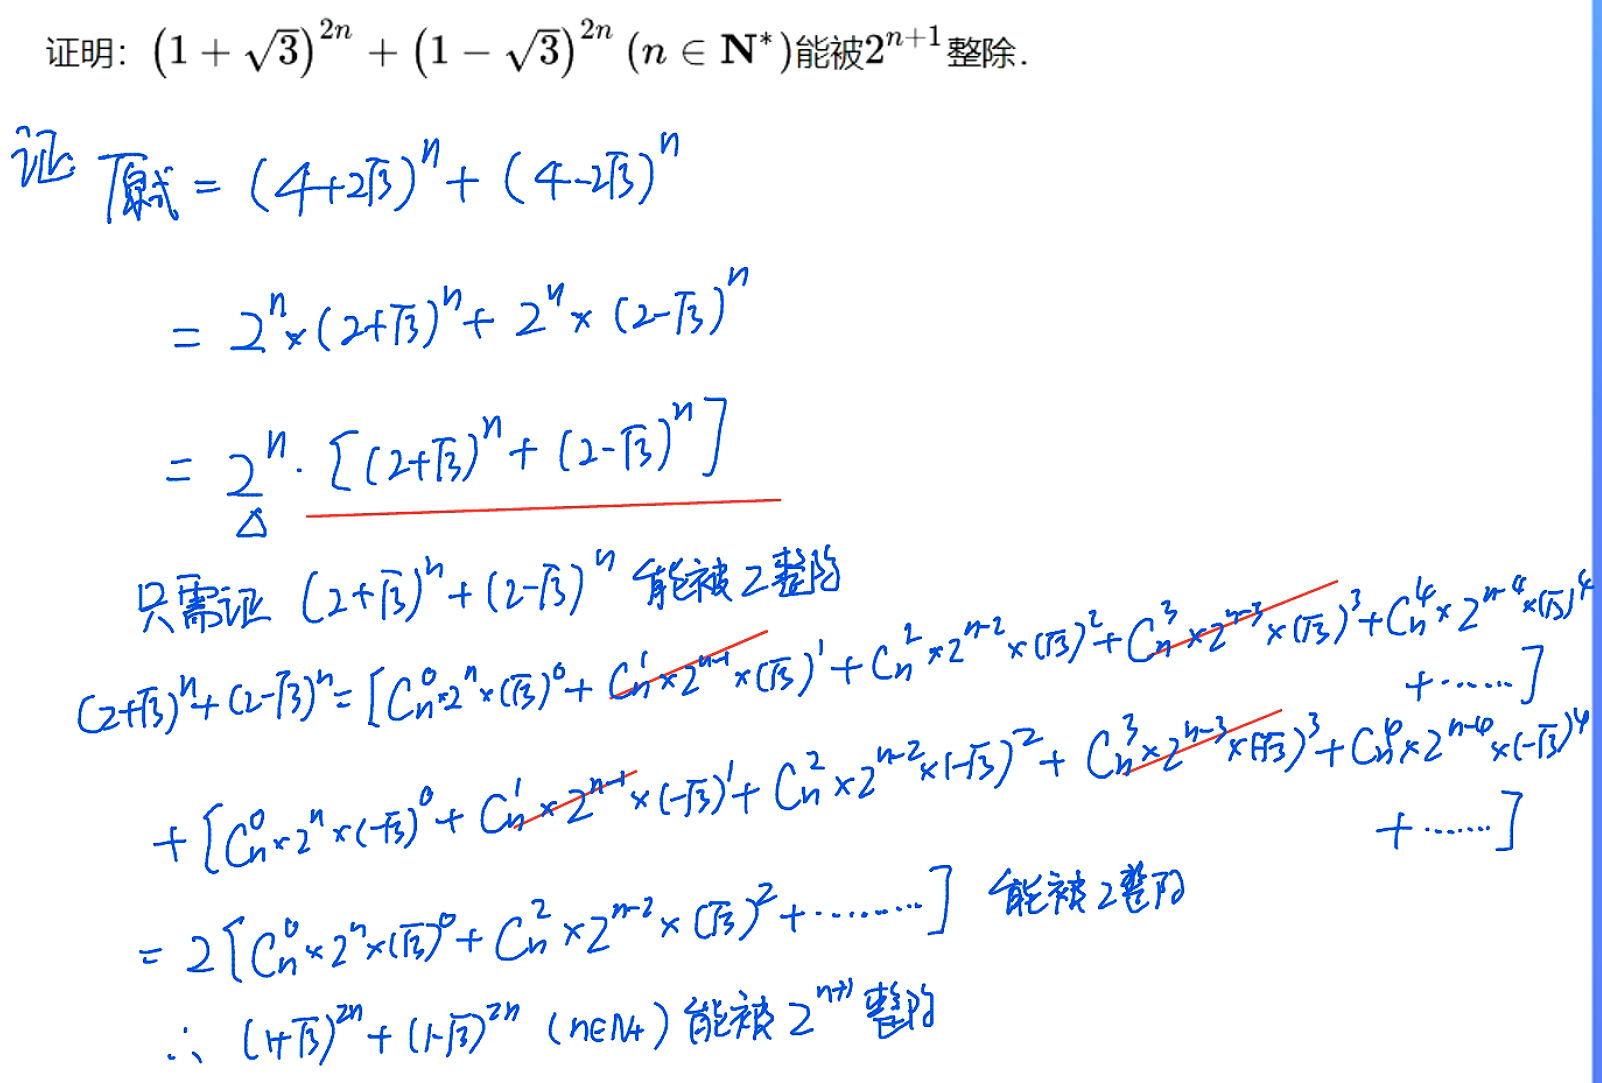 证明：(1+√3)^{2n}+(1−√3)^{2n}(n∈N*)能被2^{n+1}整除.
证: 原式=(4+2√3)^n+(4-2√3)^n
=2^n×(2+√3)^n+2^n×(2-√3)^n
=2^n·[(2+√3)^n+(2-√3)^n]
△
只需证 (2+√3)^n+(2-√3)^n 能被2整除
(2+√3)^n+(2-√3)^n=[C_n^0×2^n×(√3)^0+C_n^1×2^{n-1}×(√3)^1+C_n^2×2^{n-2}×(√3)^2+C_n^3×2^{n-3}×(√3)^3+C_n^4×2^{n-4}×(√3)^4
+……]
+[C_n^0×2^n×(-√3)^0+C_n^1×2^{n-1}×(-√3)^1+C_n^2×2^{n-2}×(-√3)^2+C_n^3×2^{n-3}×(-√3)^3+C_n^4×2^{n-4}×(-√3)^4
+……]
=2[C_n^0×2^n×(√3)^0+C_n^2×2^{n-2}×(√3)^2+………] 能被2整除
∴ (1+√3)^{2n}+(1-√3)^{2n} (n∈N+) 能被2^{n+1}整除